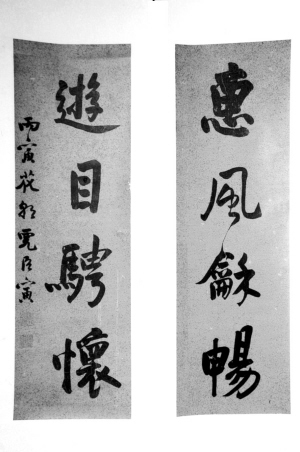 惠風龢暢
遊目騁懷
丙寅花朝臣寅